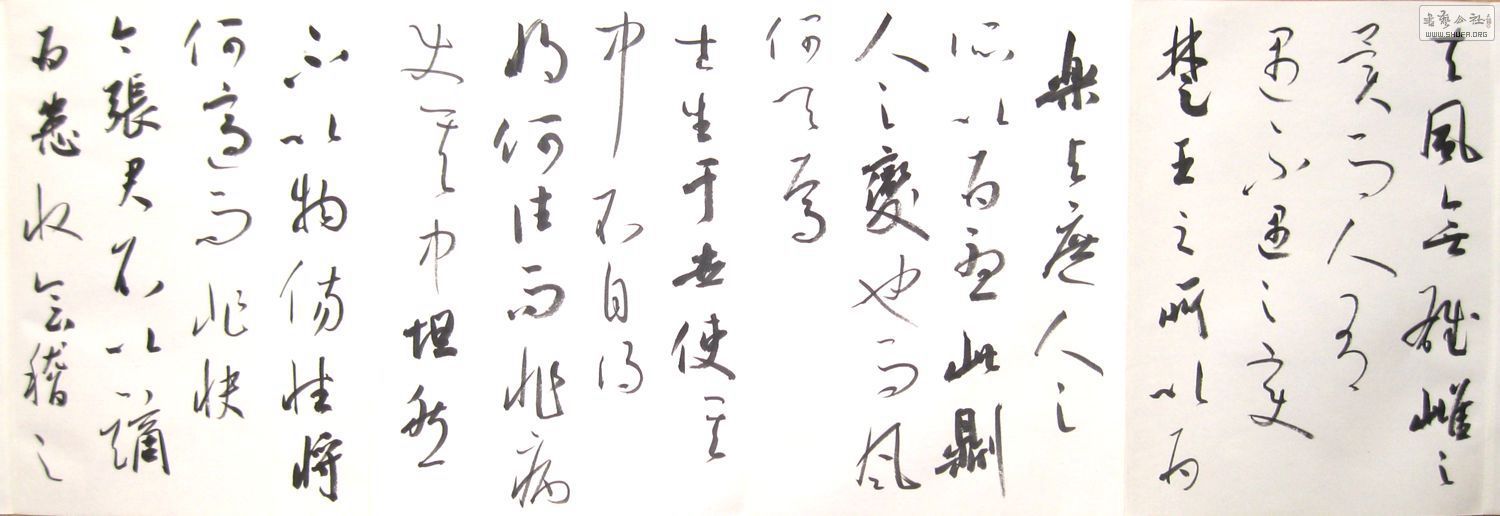 夫風無雄雌之
異而人有
遇不遇之變
楚王之所以為
樂與庶人之
所以為憂此則
人之變也而風
何與焉
士生于世使其
中不自得
將何往而非病
使其中坦然
不以物傷性將
何適而非快
今張君不以謫
為患收會稽之
WWW.SHUFA.ORG